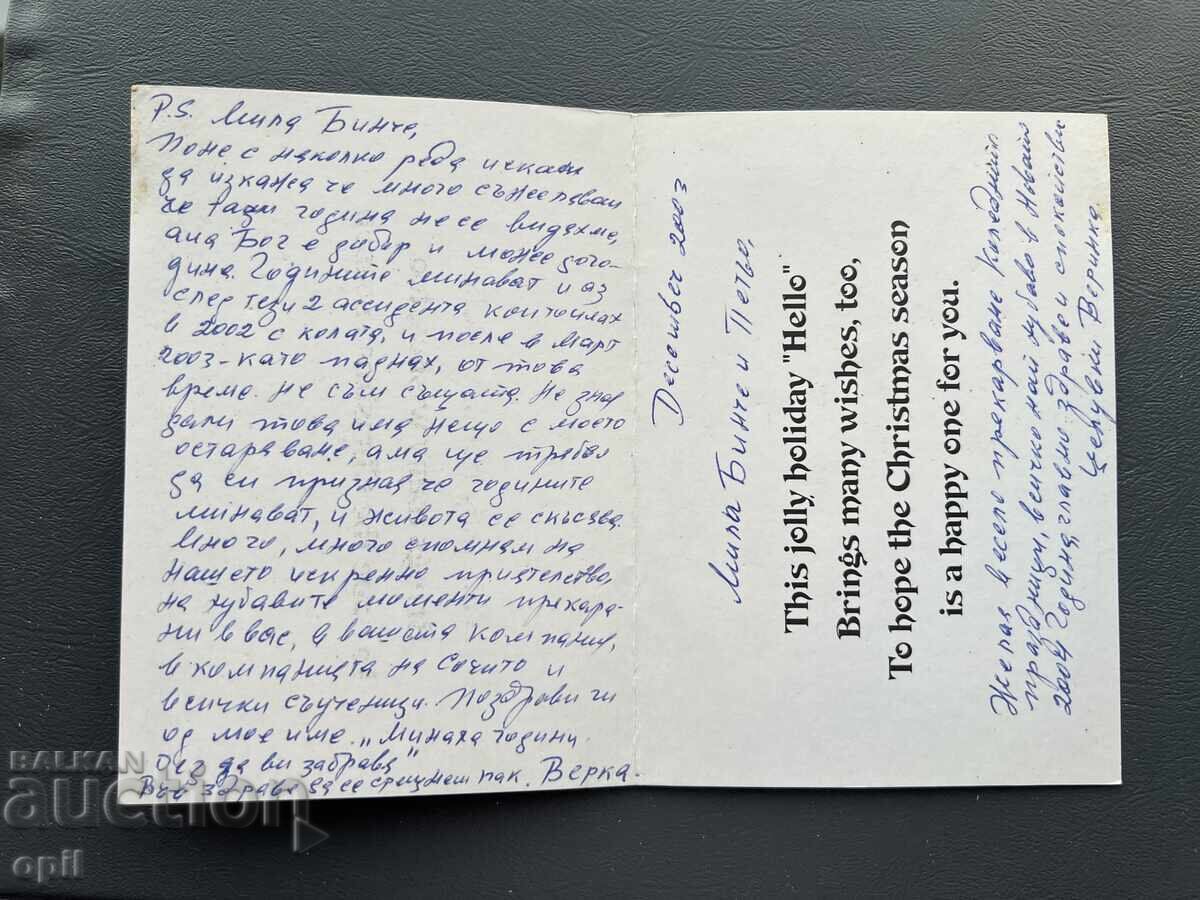 P.S. Мила Бинче,
Поне с няколко реда искам
да изкажа че много съжелявам
че тази година не се видяхме,
ала Бог е добър и може дого-
дина. Годините минават и аз
след тези 2 ассидента които имах
в 2002 с колата, и после в Март
2003 - като паднах, от това
време не съм същата. Не зная
дали това има нещо с моето
остаряване, ама ще трябва
да си призная че годините
минават, и живота се скъсява.
Много, много спомням на
нашето искренно приятелство,
на хубавите моменти прекара-
ни в вас, в вашата компания,
в компанията на Сочито и
всички съученици. Поздрави ги
од мое име. „Минаха години
без да ви забравя"
Във здраве да се срещнем пак. Верка.
Десемвеч 2003
Мила Бинче и Петьо,
This jolly holiday "Hello"
Brings many wishes, too,
To hope the Christmas season
is a happy one for you.
Желая весело прекарване Коледните
празници, всичко най хубаво в Новата
2004 Година, главно здраве и спокойствие
целувки Веринка
BALKAN
auction
opil